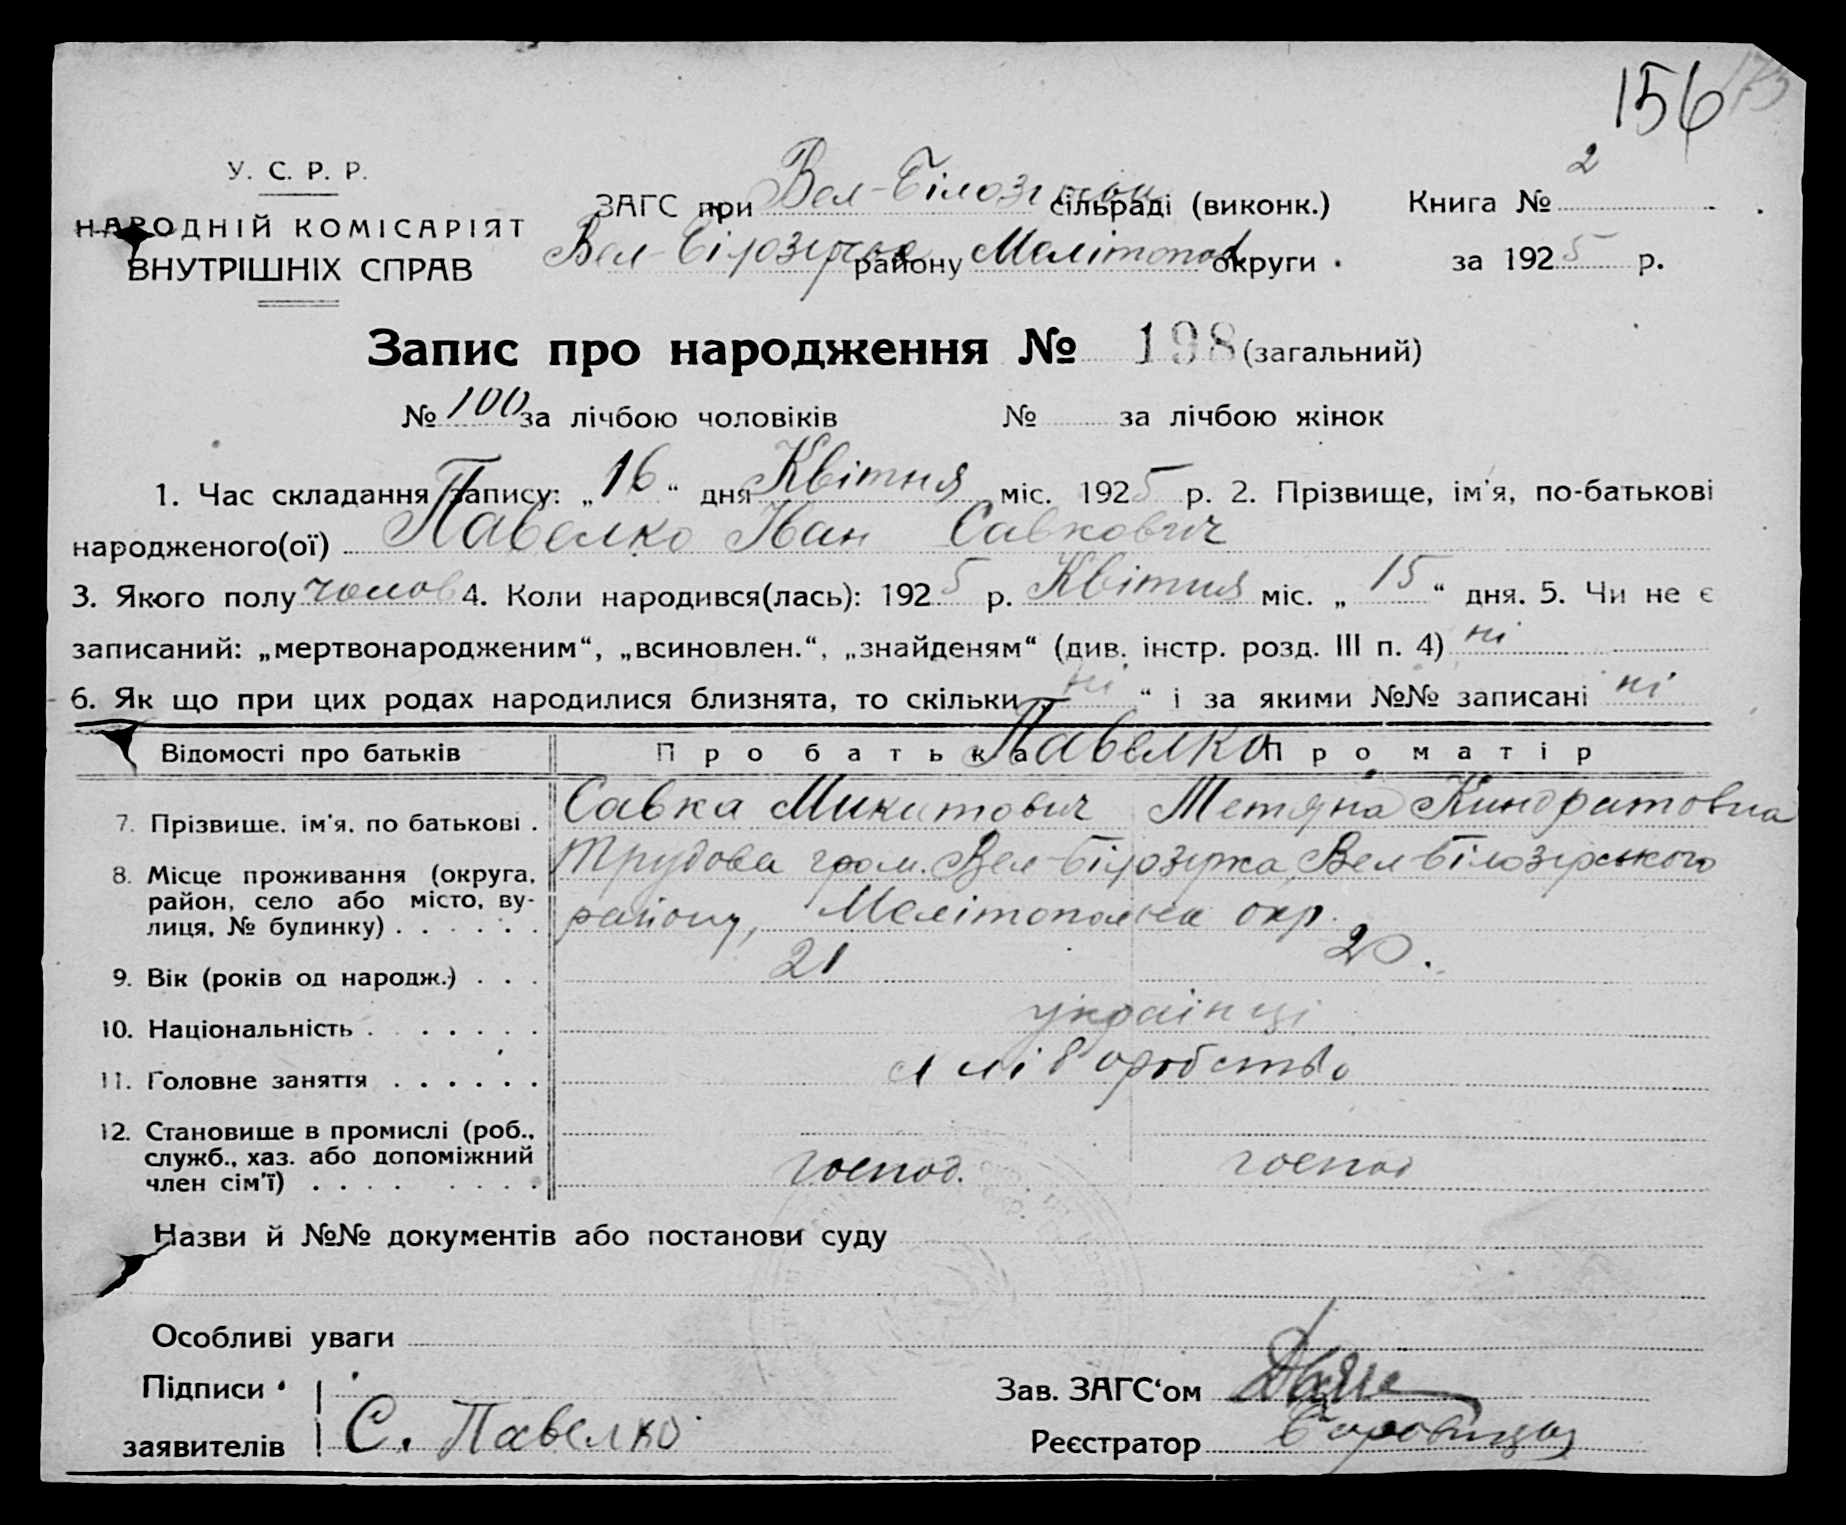 156 173
У. С. Р. Р.
НАРОДНІЙ КОМІСАРІЯТ
ВНУТРІШНІХ СПРАВ
ЗАГС при Вел-Білозірськ сільраді (виконк.) Книга № 2
Вел-Білозірськ району Мелітопол округи за 1925 р.
Запис про народження № 198 (загальний)
№ 100 за лічбою чоловіків № за лічбою жінок
1. Час складання запису: „16“ дня Квітня міс. 1925 р. 2. Прізвище, ім'я, по-батькові
народженого(ої) Павелко Іван Савкович
3. Якого полу чолов 4. Коли народився(лась): 1925 р. Квітня міс. „15“ дня. 5. Чи не є
записаний: „мертвонародженим“, „всиновлен.“, „знайденям“ (див. інстр. розд. III п. 4) ні
6. Як що при цих родах народилися близнята, то скільки „ні“ і за якими №№ записані ні
Відомості про батьків Про батька Павелко Про матір
7. Прізвище, ім'я, по батькові . Савка Микитович Тетяна Киндратовна
8. Місце проживання (округа, район, село або місто, вулиця, № будинку) . . . . . . Трудова гром. Вел-Білозірка, Вел Білозірського
району, Мелітопольска окр.
9. Вік (років од народж.) . . . 21 20.
10. Національність . . . . . . . українці
11. Головне заняття . . . . . . хліборобство
12. Становище в промислі (роб.,
служб., хаз. або допоміжний
член сім'ї) . . . . . . . . господ. господ
Назви й №№ документів або постанови суду
Особливі уваги
Підписи Зав. ЗАГС‘ом
заявителів С. Павелко Реєстратор